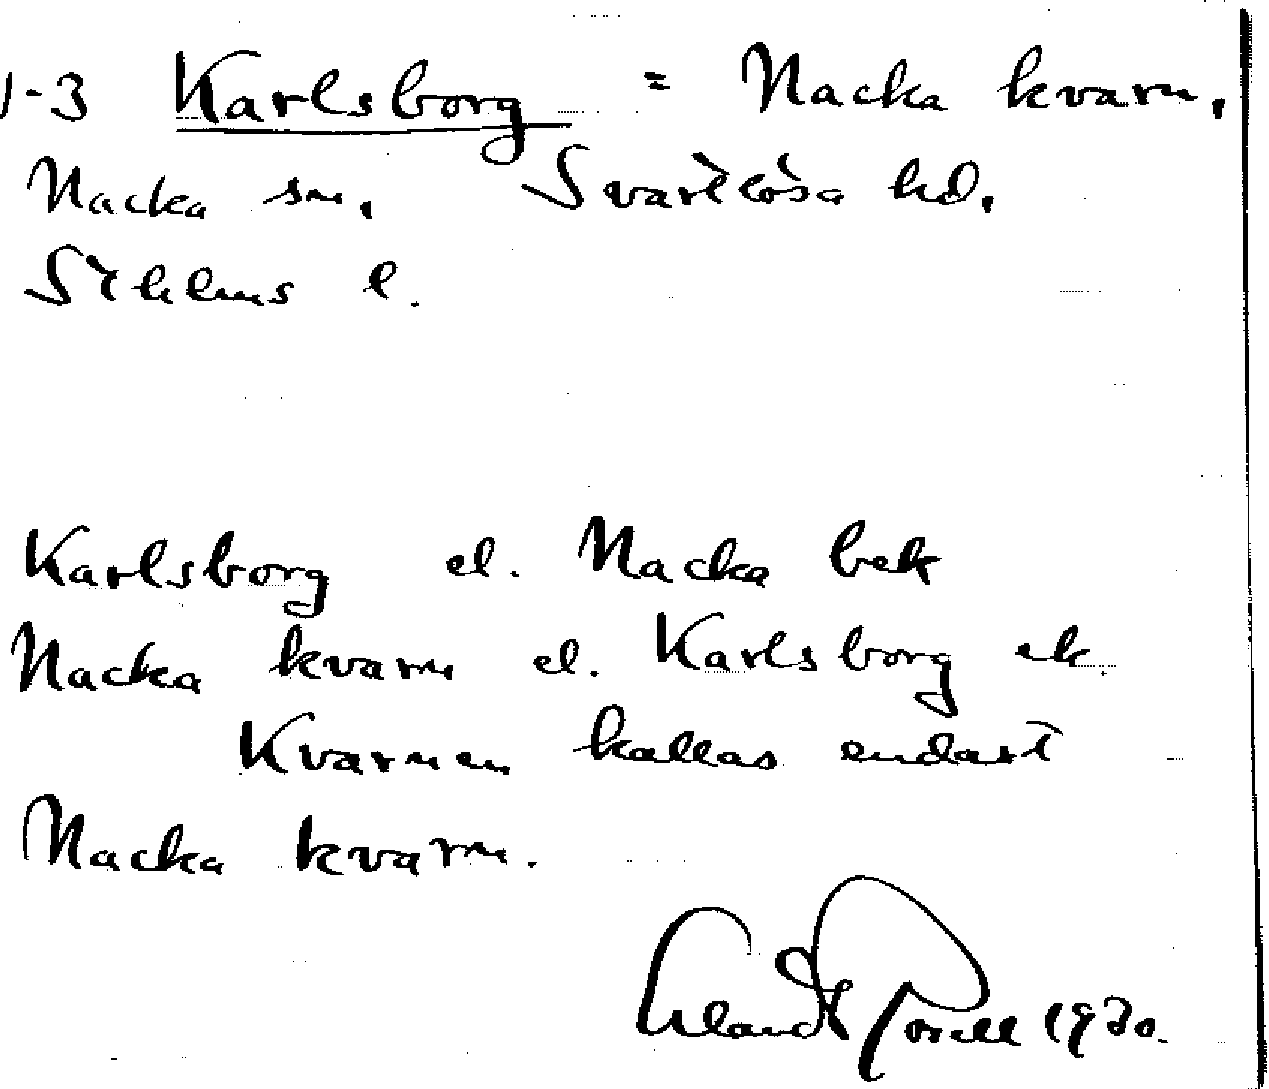 1-3 Karlsborg = Nacka kvarn,
Nacka sn, Svartlösa hd,
Sthlms l.
Karlsborg el. Nacka bek
Nacka kvarn el. Karlsborg ek.
Kvarnen kallas endast
Nacka kvarn.
Erland Rosell 1930.